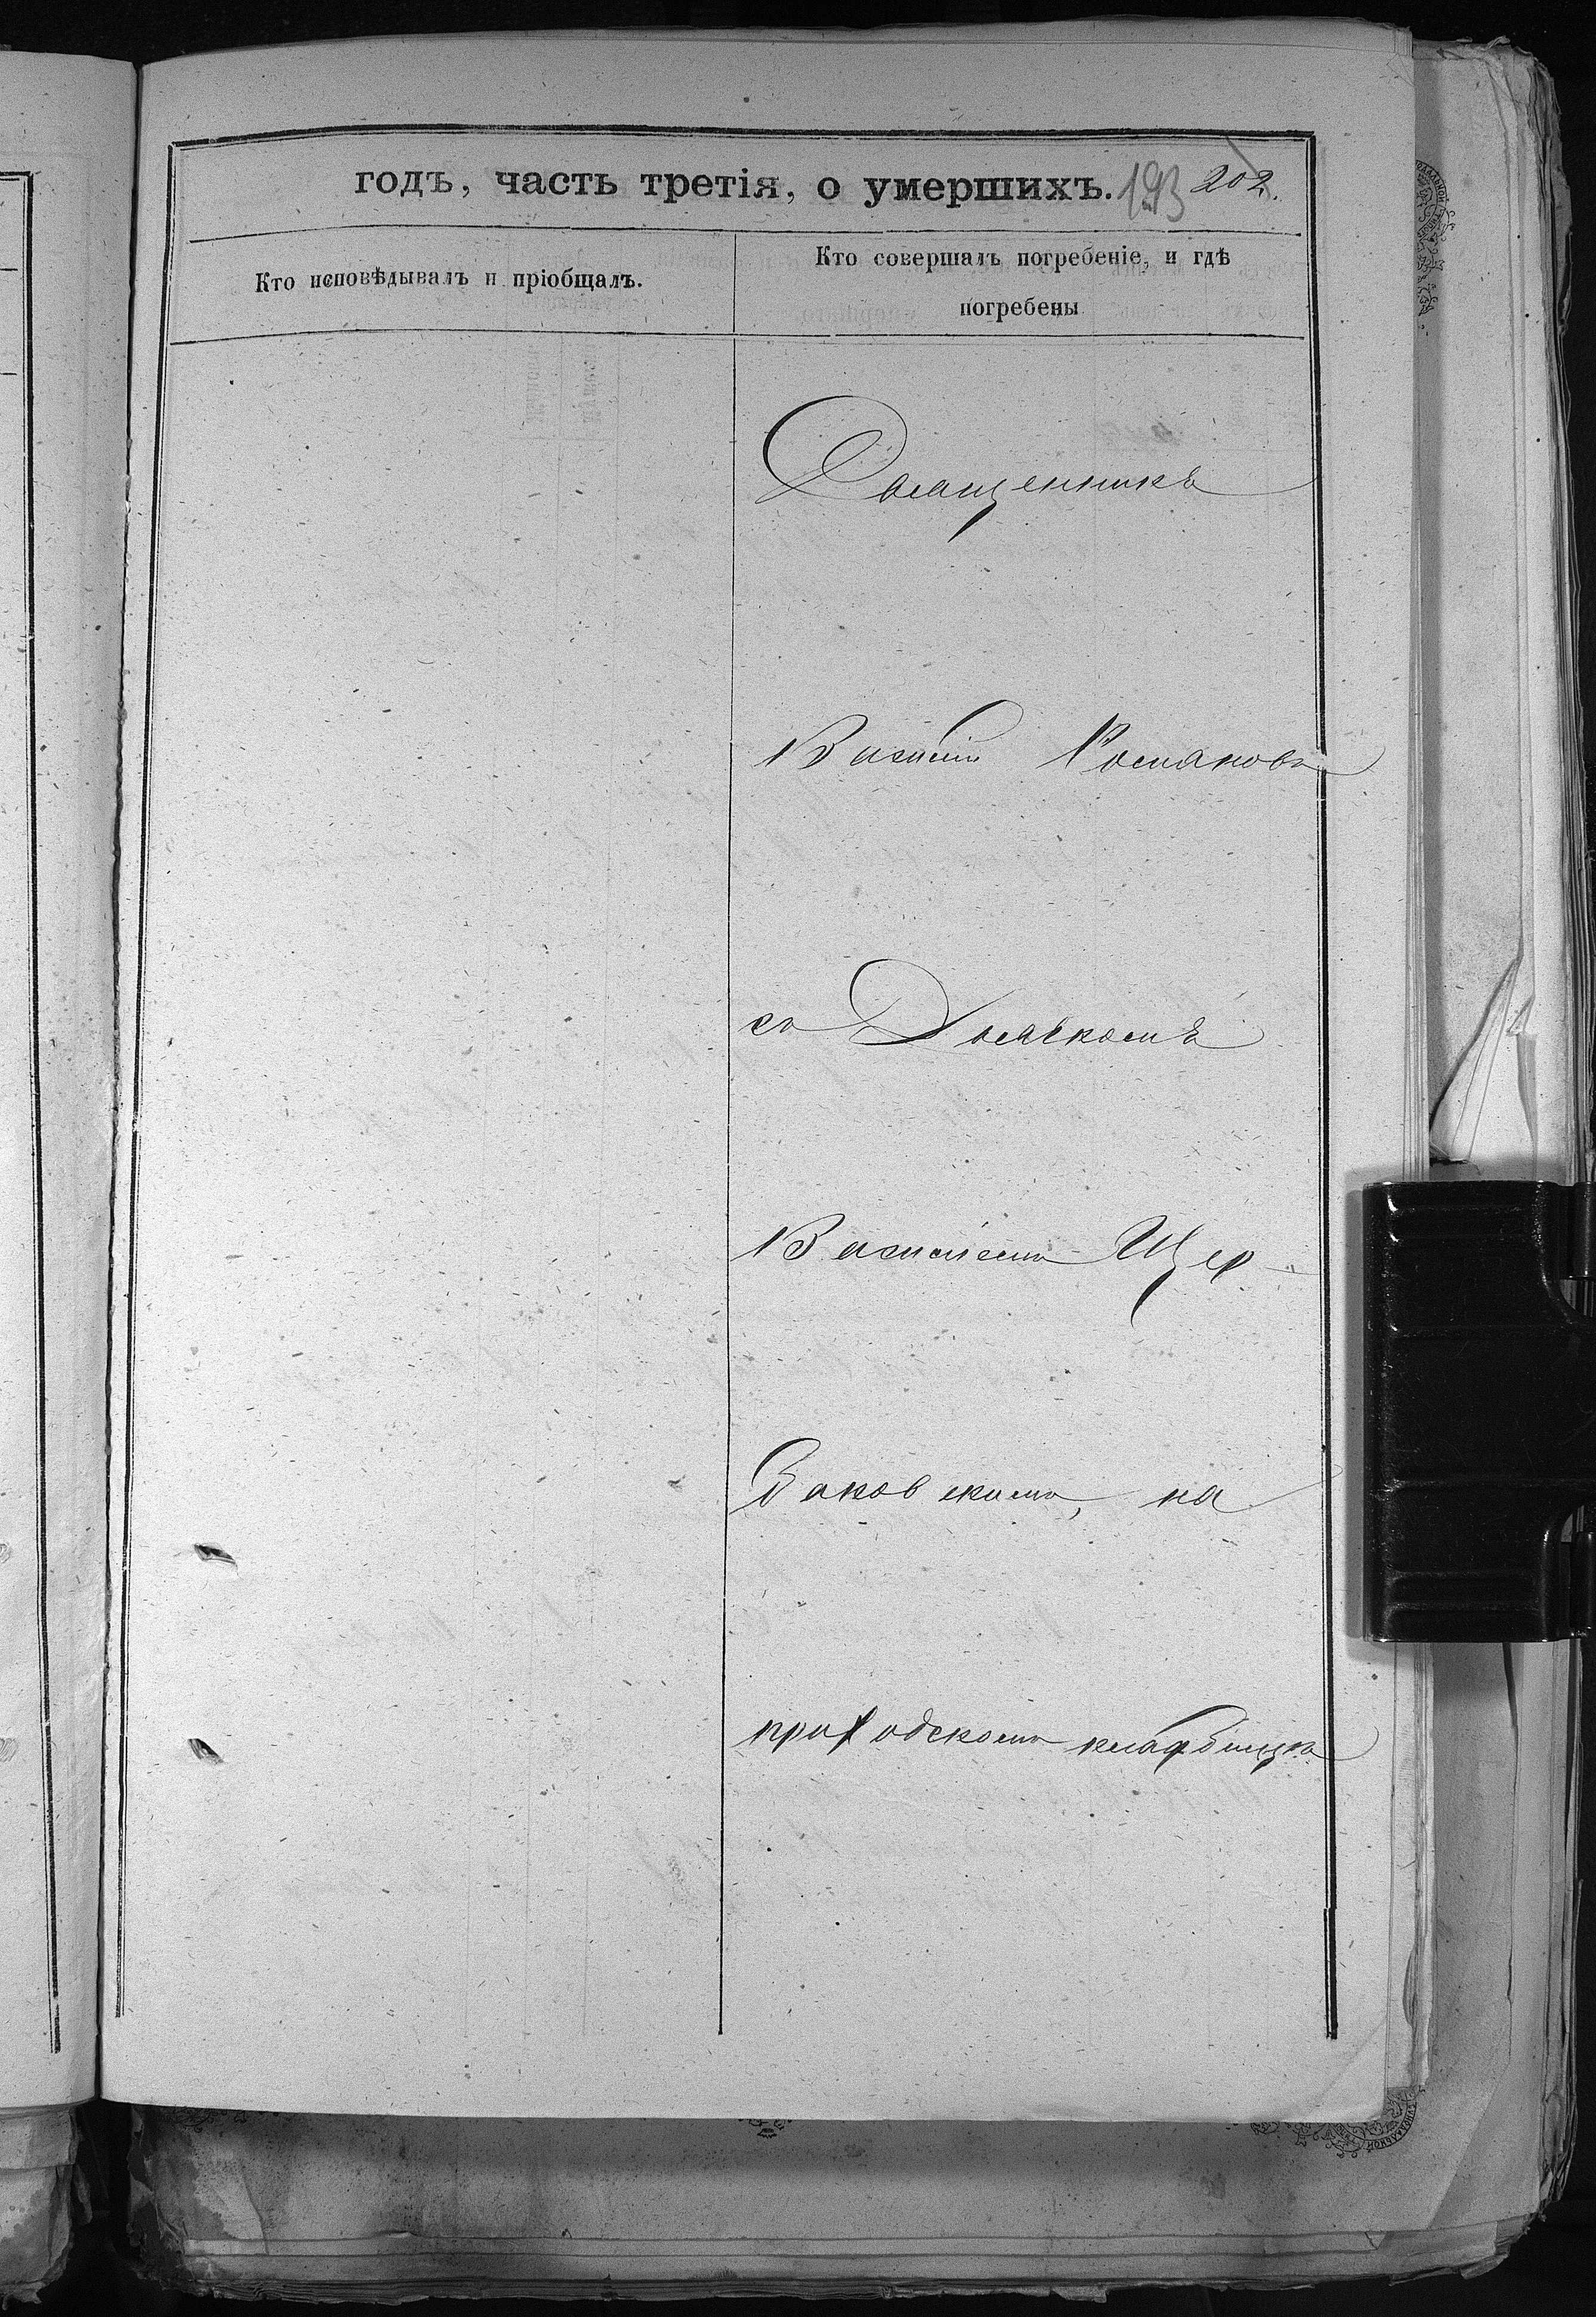 годъ, часть третія, о умершихъ. 193 202.
Кто исповѣдывалъ и пріобщалъ.
Кто совершалъ погребеніе, и гдѣ
погребены
Священникъ
Василій Романовъ
съ Дьячкомъ
Василіемъ Щер-
баковскимъ, на
приходскомъ кладбищѣ